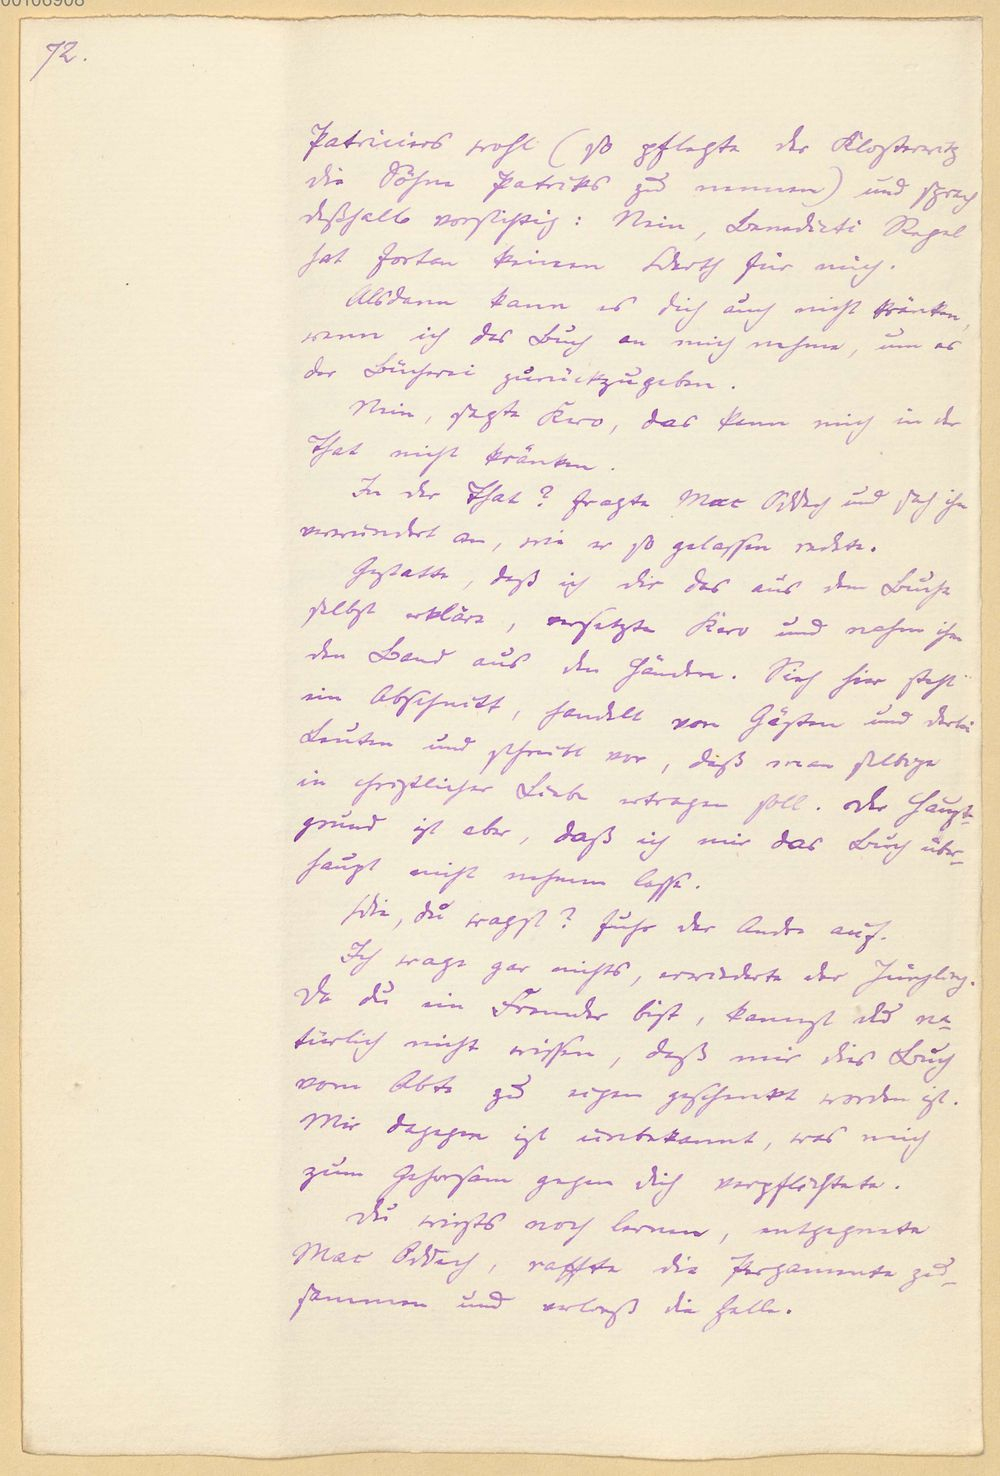 00106908
72.
Patriciers wohl (so pflegte der Klosterwitz
die Söhne Patriks zu nennen) und sprach
deßhalb vorsichtig: Nein, Benedicti Regel
hat fortan keinen Werth für mich.
Alsdann kann es dich auch nicht kränken,
wenn ich das Buch an mich nehme, um es
der Bücherei zurückzugeben.
Nein, sagte Kero, das kann mich in der
That nicht kränken.
In der That? fragte Mac Oddach und sah ihn
verwundert an, wie er so gelassen redete.
Gestatte, daß ich dir das aus dem Buche
selbst erkläre, versetzte Kero und nahm ihm
den Band aus den Händen. Sieh hier steht
ein Abschnitt, handelt von Gästen und derlei
Leuten und schreibt vor, daß man selbige
in christlicher Liebe ertragen soll. Der Haupt-
grund ist aber, daß ich mir das Buch über-
haupt nicht nehmen lasse.
Wie, du wagst? fuhr der Andre auf.
Ich wage gar nichts, erwiederte der Jüngling.
Da du ein Fremder bist, kannst du na-
türlich nicht wissen, daß mir dies Buch
vom Abte zu eigen geschenkt worden ist.
Mir dagegen ist unbekannt, was mich
zum Gehorsam gegen dich verpflichtete.
Du wirsts noch lernen, entgegnete
Mac Oddach, raffte die Pergamente zu-
sammen und verließ die Halle.